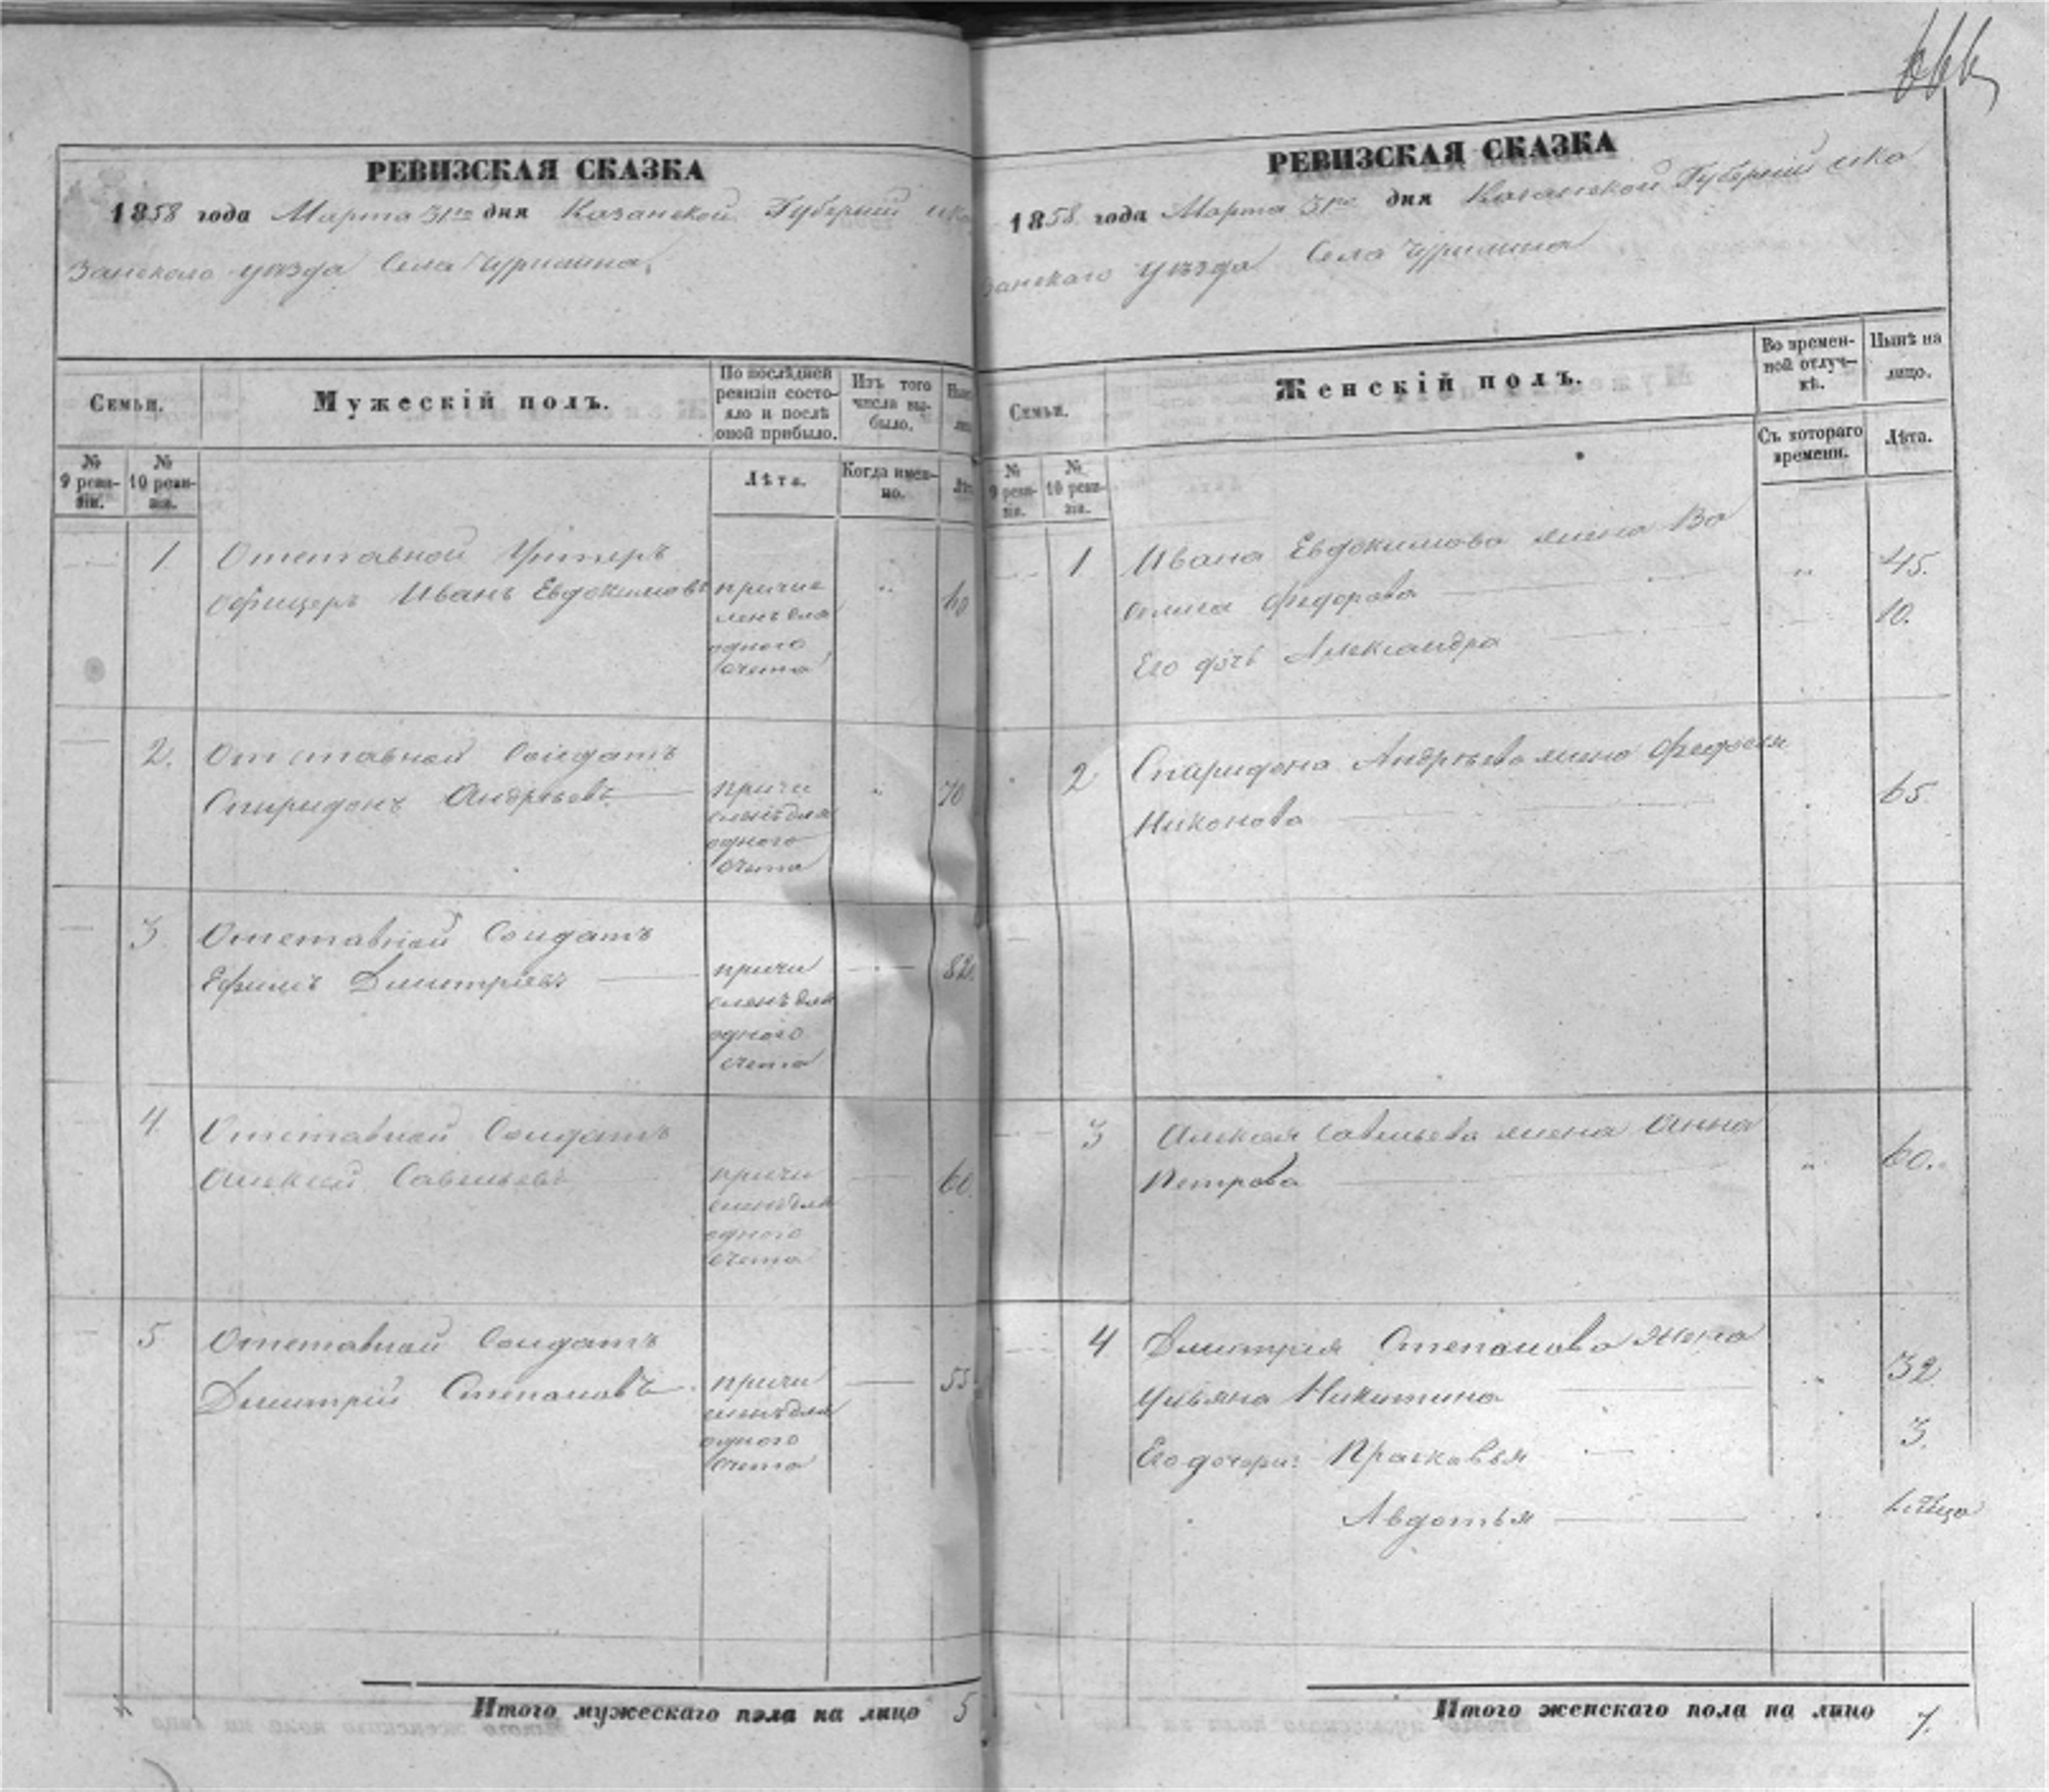 666
РЕВИЗСКАЯ СКАЗКА
1858 года Марта 31го дня Казанской Губерніи и Ка
занскаго уѣзда Села Чурилина.
Семьи.
Мужескій полъ.
По послѣдней ревизіи состояло и послѣ оной прибыло.
Изъ того числа выбыло.
№ 9 ревизіи.
№ 10 ревизіи.
Лѣта.
Когда именно.
1 Отставной Унтеръ
офицеръ Иванъ Евдокимовъ причис 60
ленъ для
одного
счета
2. Отставной Солдатъ
Спиридонъ Андреевъ причи 70
сленъ для
одного
счета
3 Отставной Солдатъ
Ефимъ Дмитріевъ причи 82.
сленъ для
одного
счета
4 Отставной Солдатъ
Алексей Савельевъ причи 60.
сленъ для
одного
счета
5 Отставной Солдатъ
Дмитрій Степановъ причи 55
сленъ для
одного
счета
Итого мужескаго пола на лицо 5
РЕВИЗСКАЯ СКАЗКА
1858 года Марта 31го дня Казанской Губерніи и Ка
занскаго уѣзда Села Чурилина
Семьи.
Женскій полъ.
Во временной отлучкѣ.
Нынѣ на лицо.
№ 9 ревизіи.
№ 10 ревизіи.
Съ котораго времени.
Лѣта.
1. Ивана Евдокимова жена Ва 45.
Федорова 10.
Его дочь Александра
2 Спиридона Андреева жена Федосья
Никонова 65.
3 Алексея Савельева жена Анна
Петрова 60.
4 Дмитрія Степанова жена
Ульяна Никитина 32
Его дочери: Прасковья 3.
Авдотья
Итого женскаго пола на лицо 7.